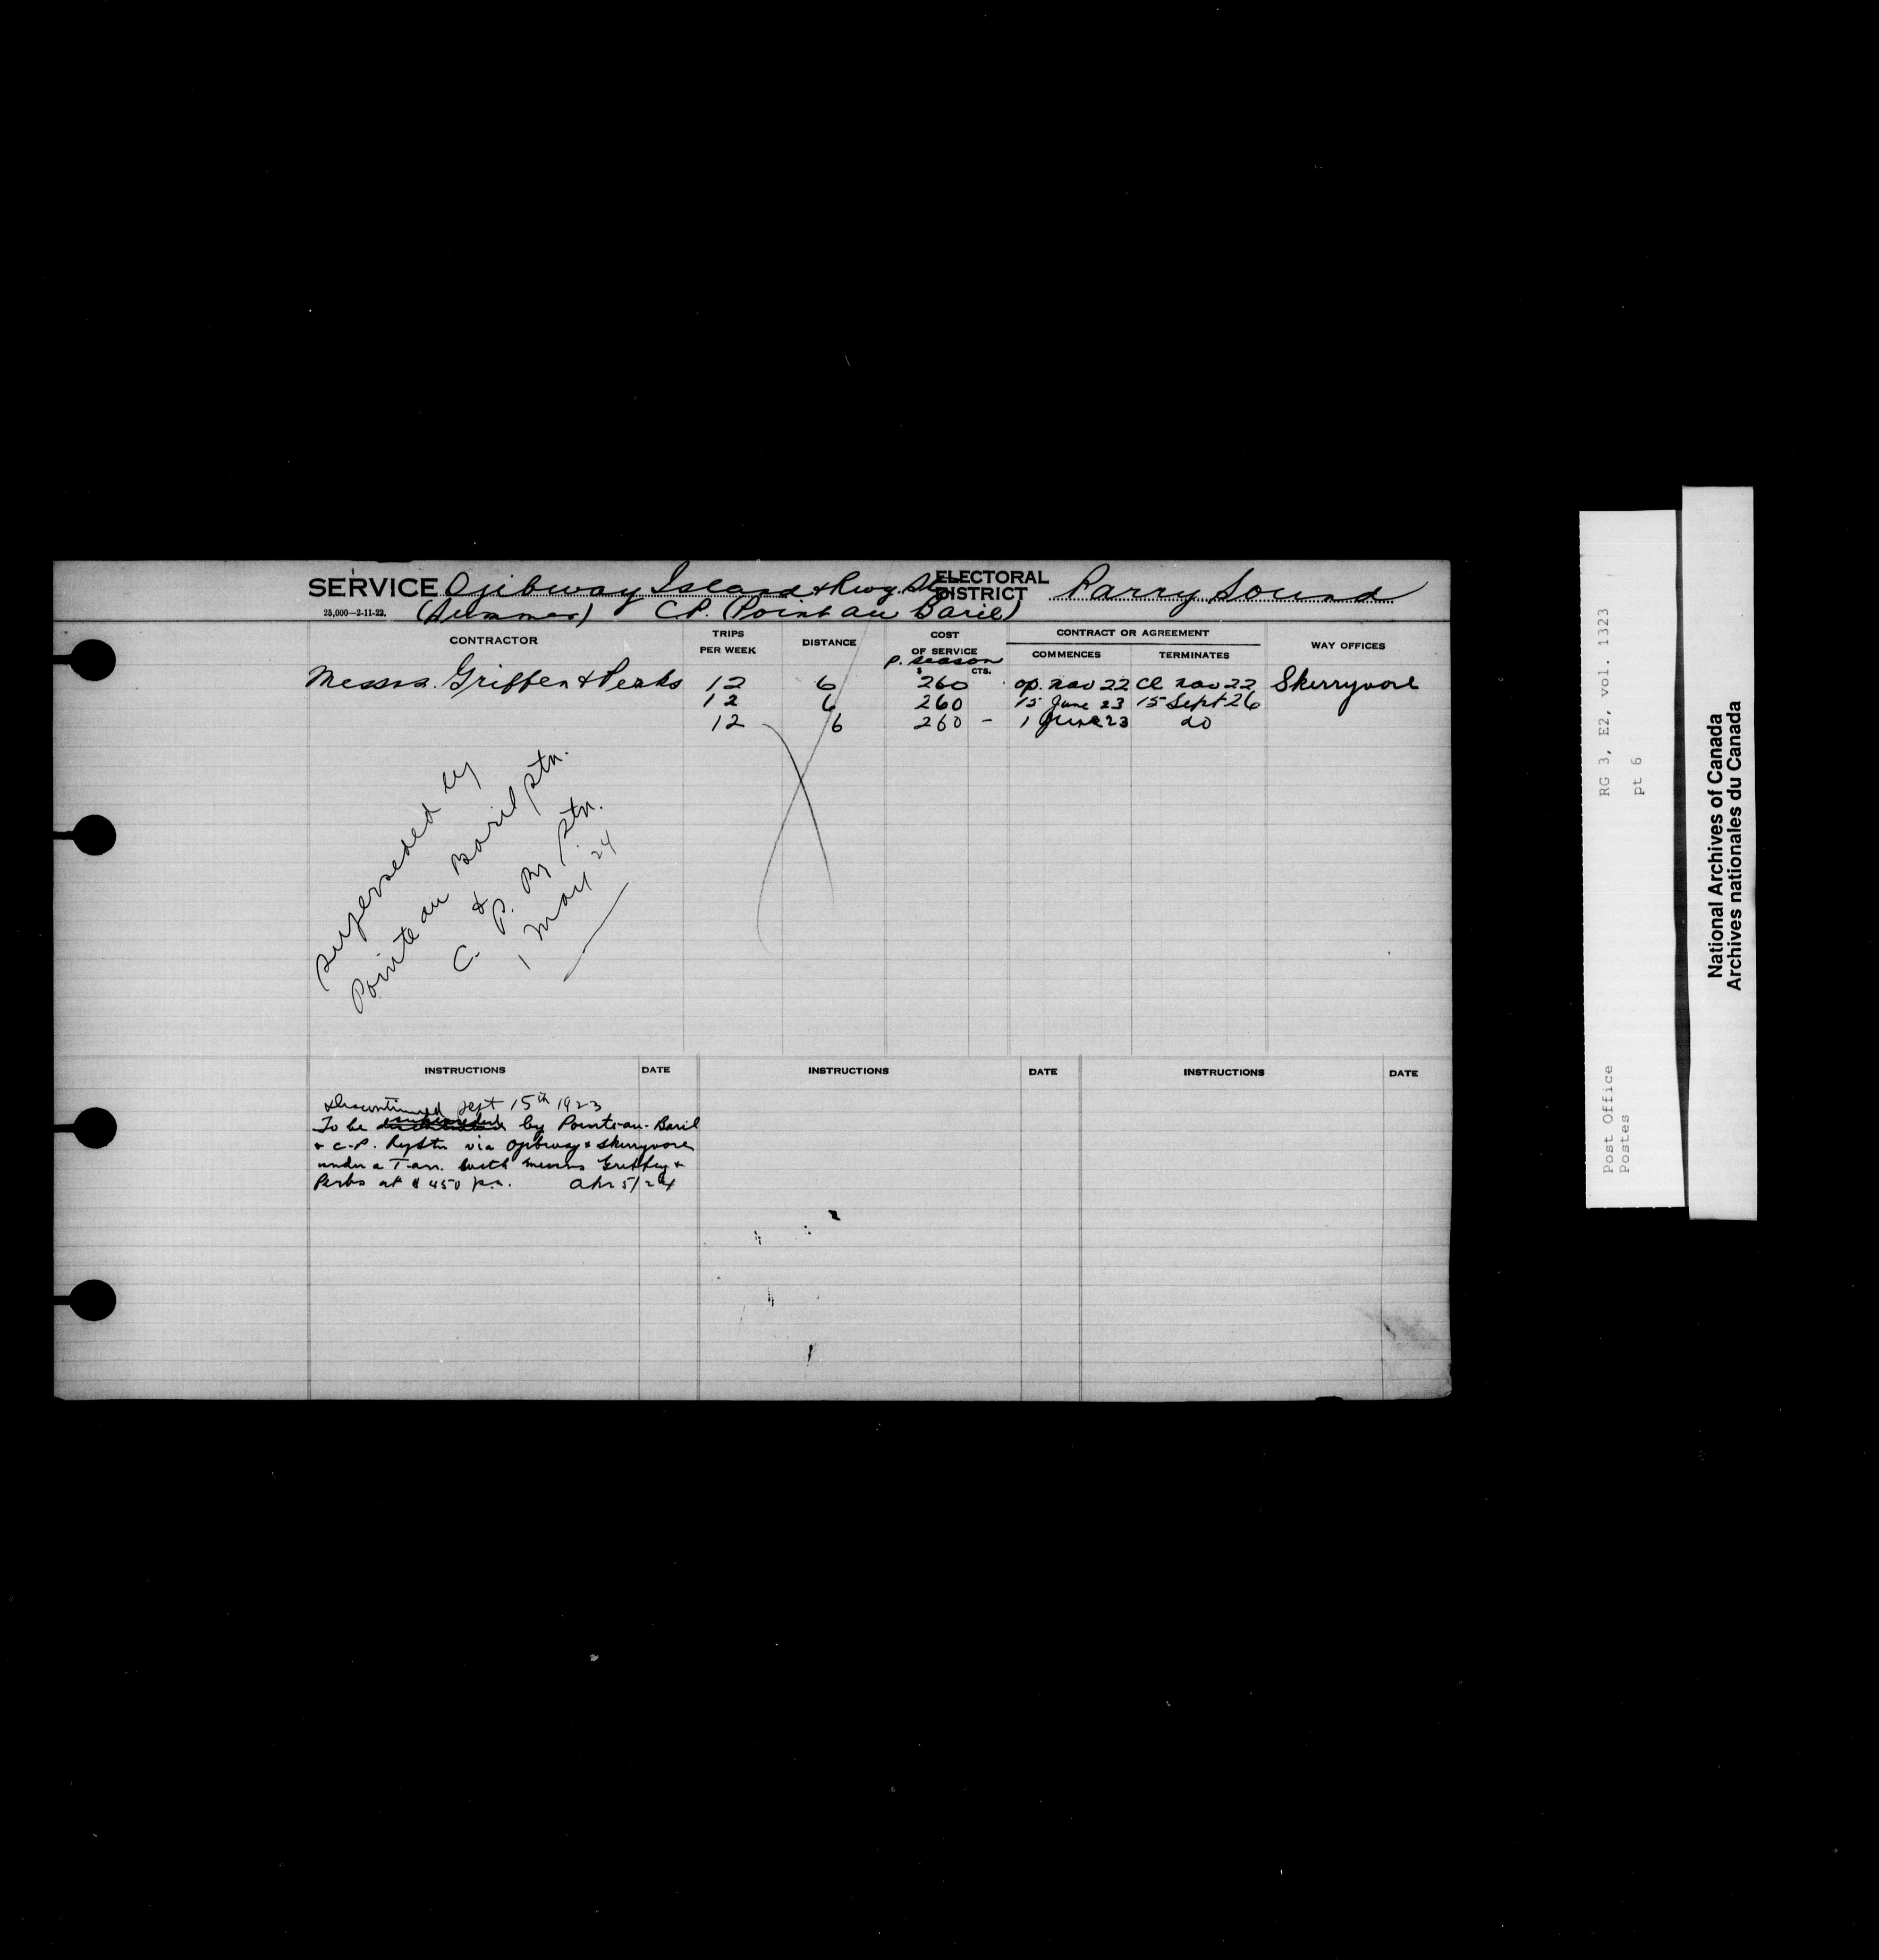 SERVICE Ojibway Island & Rwy. Stn ELECTORAL DISTRICT Parry Sound
25,000—2-11-22. (Summer) C.P. (Point au Baril)
CONTRACTOR TRIPS PER WEEK DISTANCE COST OF SERVICE CONTRACT OR AGREEMENT WAY OFFICES
p. season COMMENCES TERMINATES
$ CTS.
Messrs. Griffen & Perks 12 6 260 op. nav 22 cl nav 22 Skerryvore
12 6 260 15 June 23 15 Sept 26
12 6 260 - 1 June 23 do
superseded by
Pointe au Baril stn.
&
C. P. Ry stn.
1 May 24
INSTRUCTIONS DATE INSTRUCTIONS DATE INSTRUCTIONS DATE
discontinued Sept 15th 1923
To be superseded by Pointe-au-Baril
& C.P. Ry Stn via Ojibway & Skerryvore
under a T-an. with messrs Griffey &
Perks at $450 p.a. Apr 5/24
RG 3, E2, vol. 1323
pt 6
Post Office
Postes
National Archives of Canada
Archives nationales du Canada